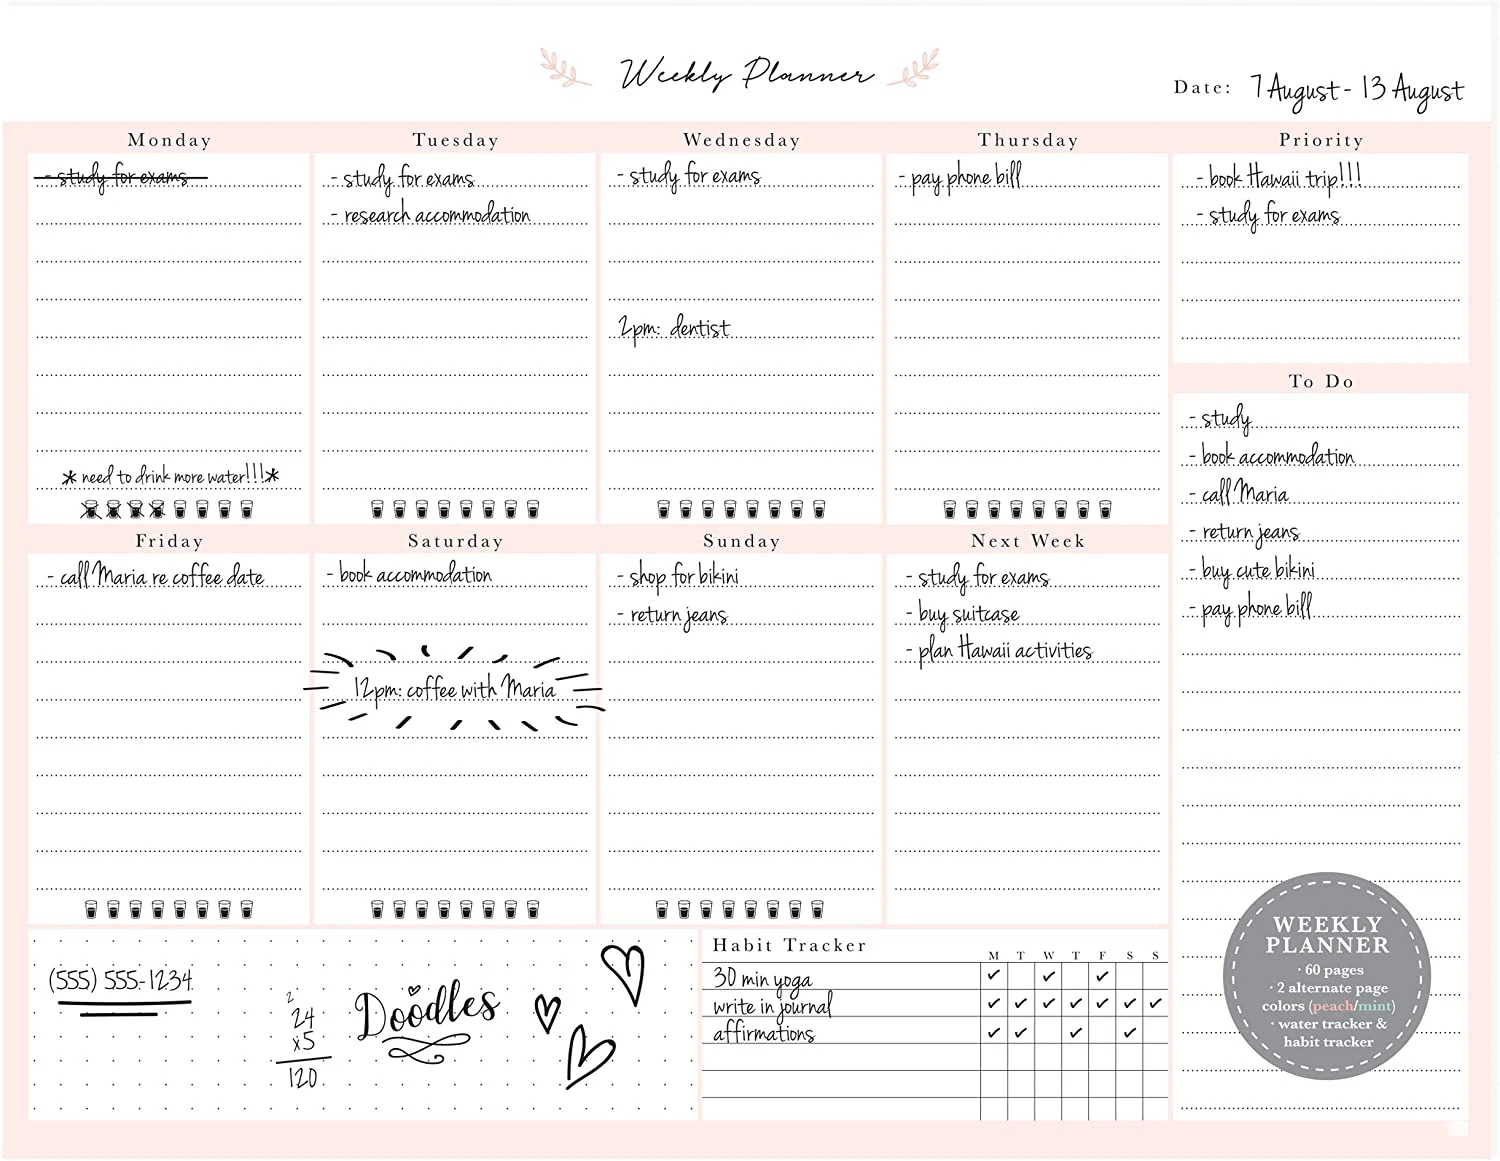 Weekly Planner
Date: 7 August - 13 August
Monday
- study for exams
* need to drink more water!!! *
Tuesday
- study for exams
- research accommodation
Wednesday
- study for exams
2pm: dentist
Thursday
- pay phone bill
Priority
- book Hawaii trip!!!
- study for exams
To Do
- study
- book accommodation
- call Maria
- return jeans
- buy cute bikini
- pay phone bill
Friday
- call Maria re coffee date
Saturday
- book accommodation
12pm: coffee with Maria
Sunday
- shop for bikini
- return jeans
Next Week
- study for exams
- buy suitcase
- plan Hawaii activities
(555) 555-1234
2
24
x5
120
Doodles
Habit Tracker
M T W T F S S
30 min yoga ✓ ✓ ✓
write in journal ✓ ✓ ✓ ✓ ✓ ✓ ✓
affirmations ✓ ✓ ✓ ✓
WEEKLY
PLANNER
· 60 pages
· 2 alternate page
colors (peach/mint)
· water tracker &
habit tracker